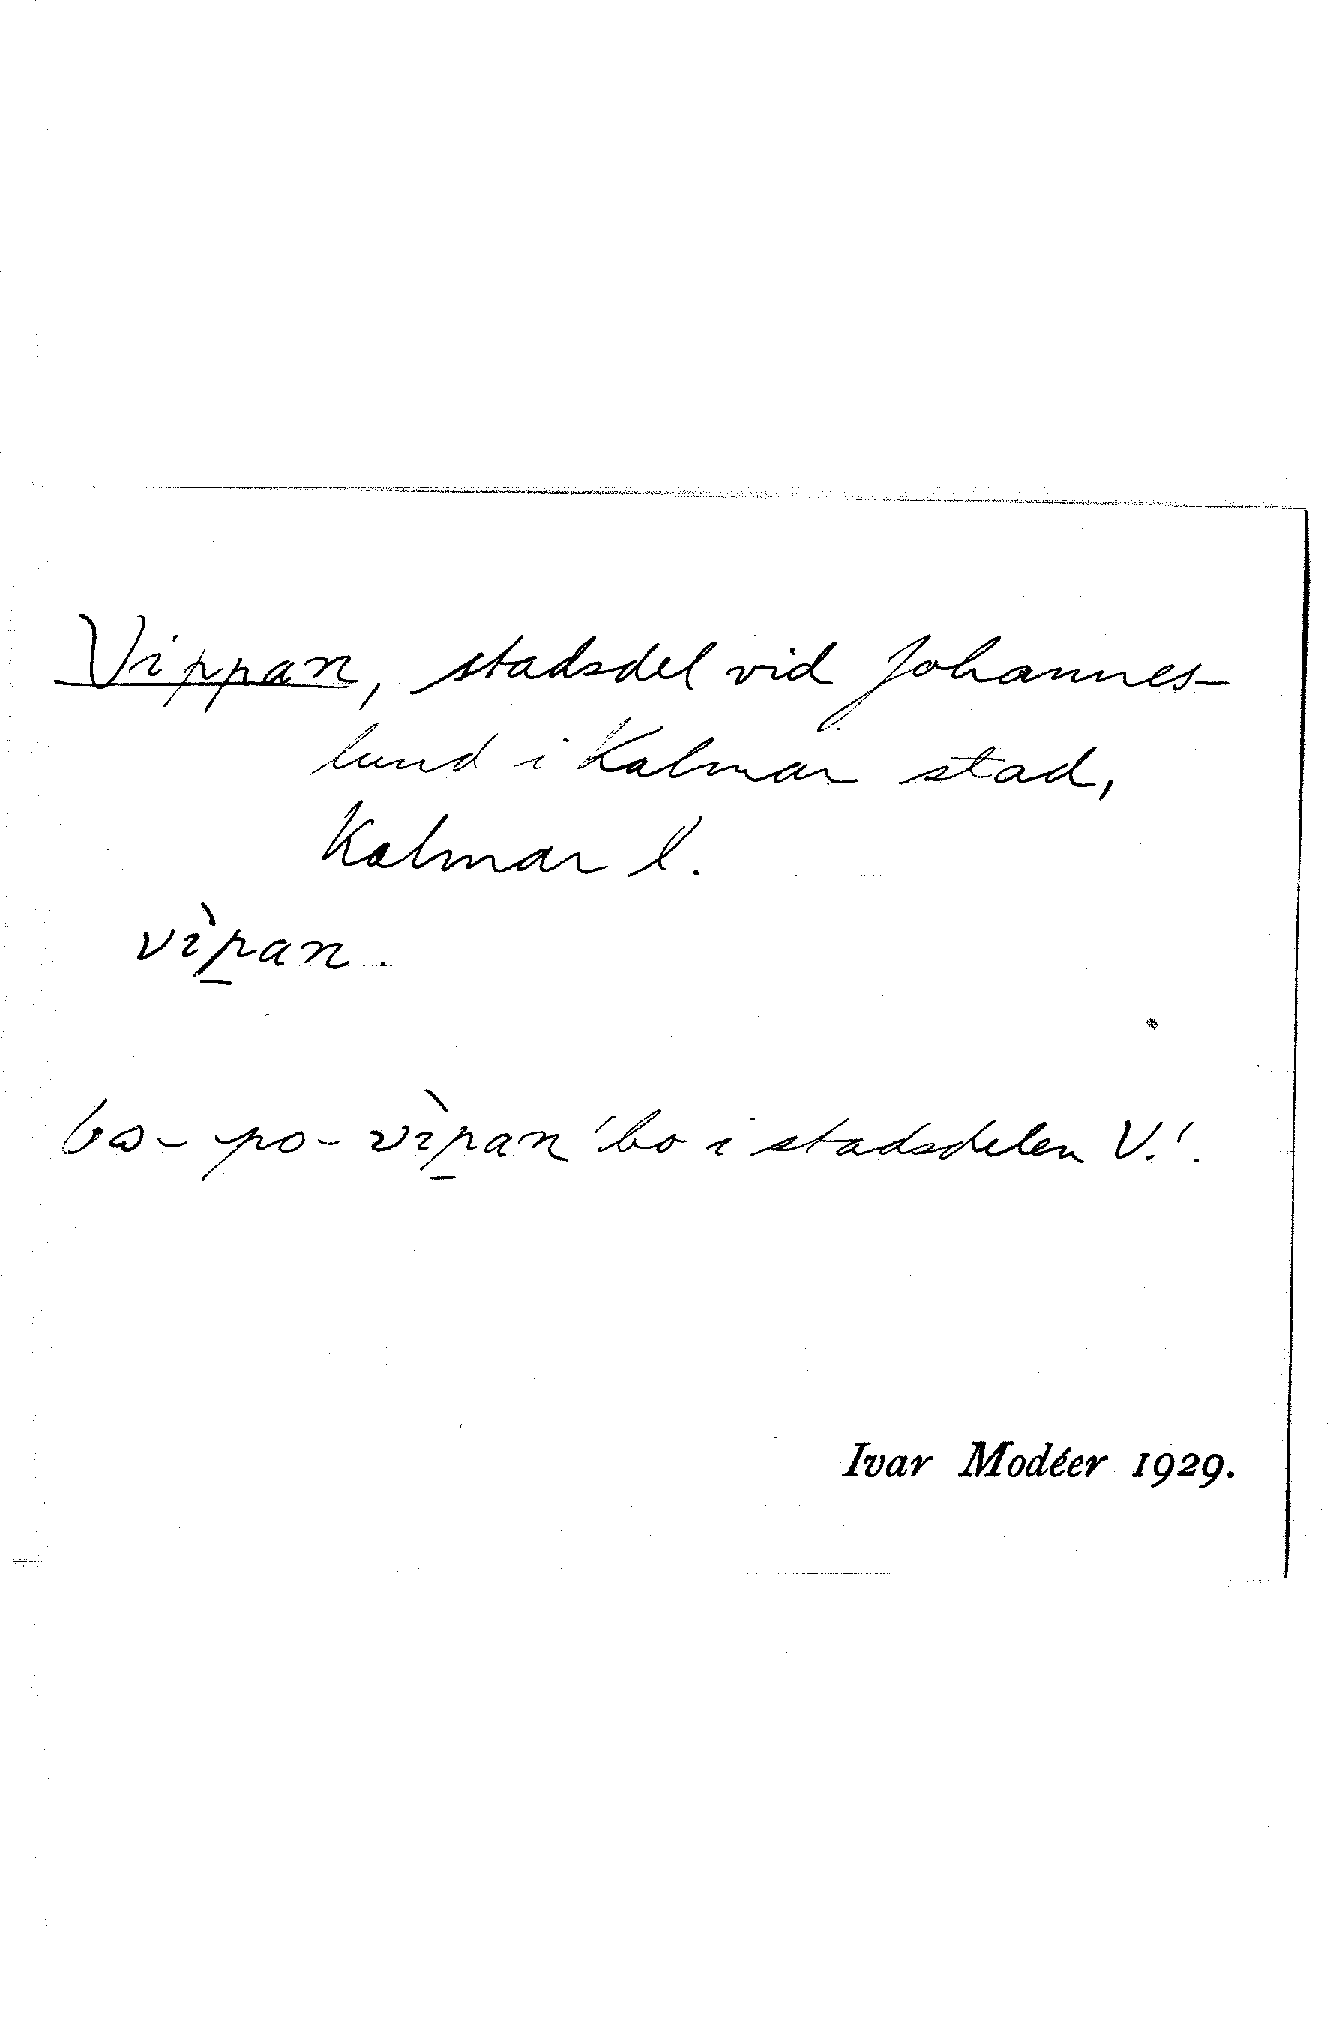 Vippan, stadsdel vid Johannes-
lund i Kalmar stad,
Kalmar l.
vìp̲an.
bω- po- vìp̲an 'bo i stadsdelen V.'.
Ivar Modéer 1929.